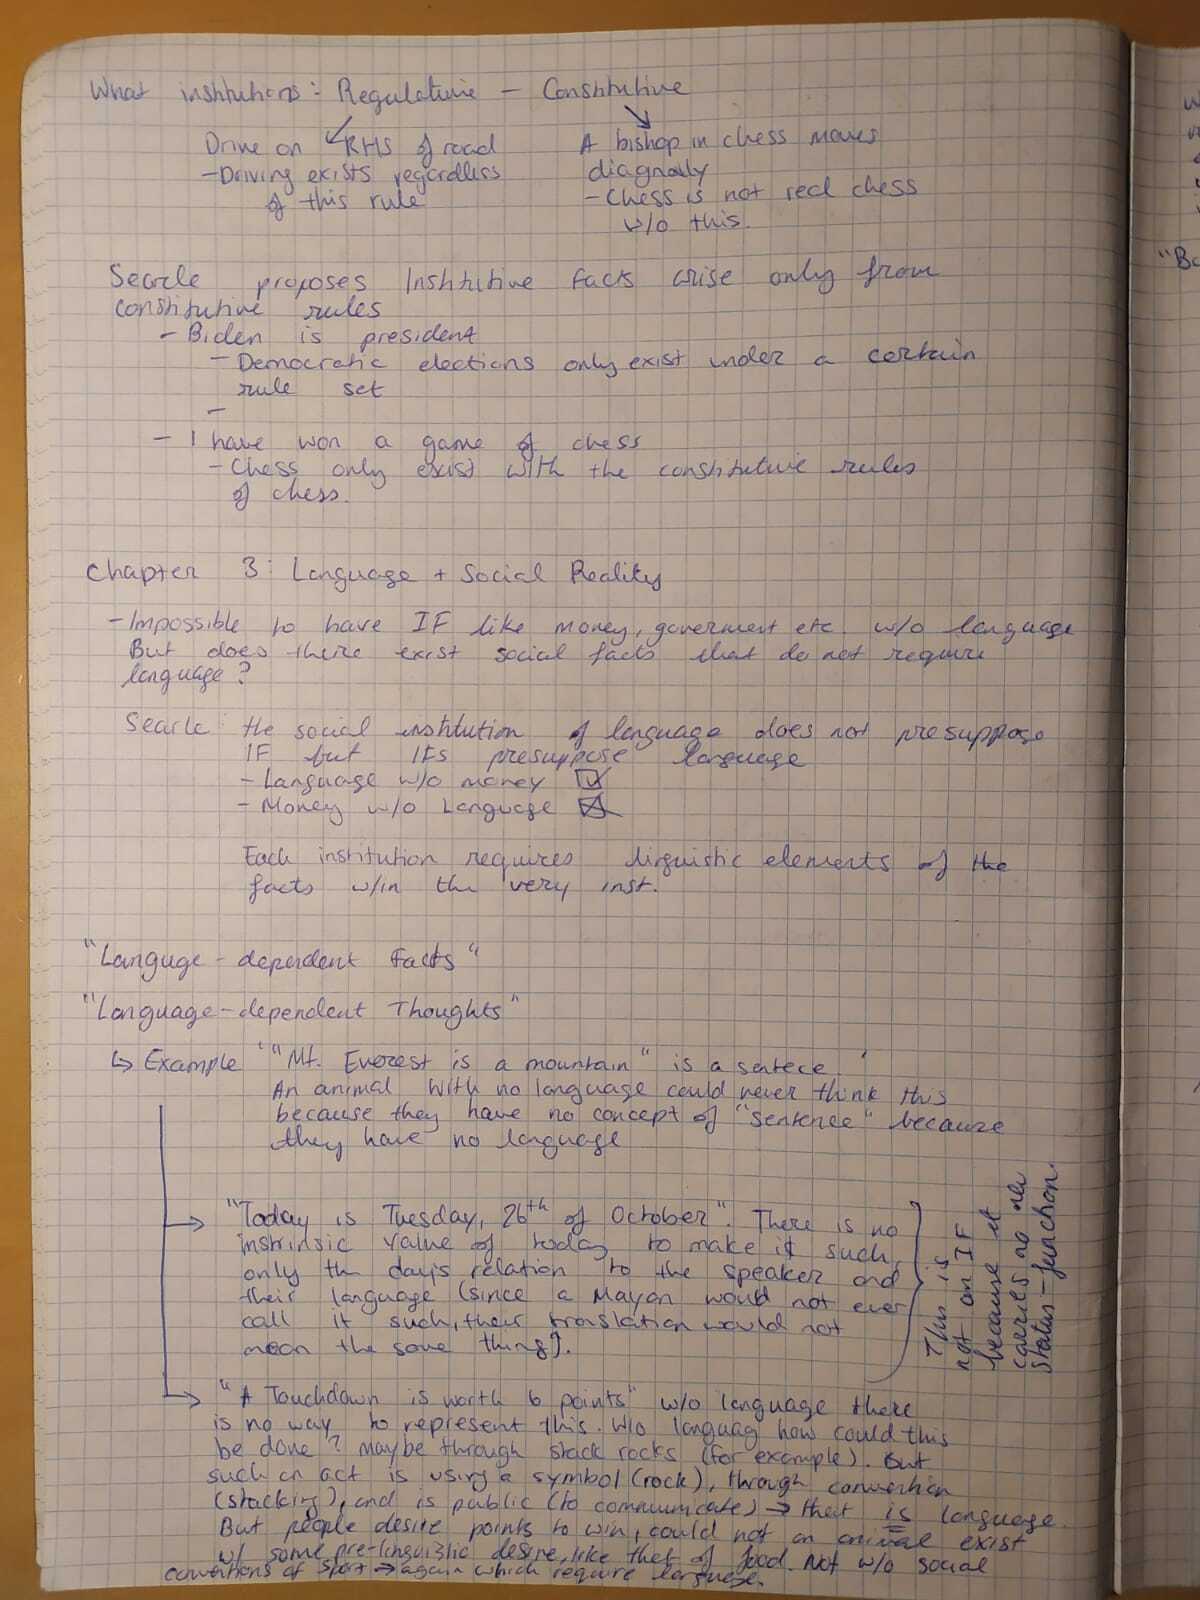 What institutions: Regulative – Constitutive
Drive on RHS of road
-Driving exists regardless
of this rule
A bishop in chess moves
diagnally
- Chess is not real chess
w/o this.
Searle proposes Institutive Facts arise only from
constitutive rules
- Biden is president
- Democratic elections only exist under a certain
rule set
-
- I have won a game of chess
- Chess only exist with the constitutive rules
of chess.
Chapter 3: Language + Social Reality
- Impossible to have IF like money, goverment etc. w/o language
But does there exist social facts that do not require
language?
Searle: the social institution of language does not presuppose
IF but IFs presuppose language
- Language w/o money ☑
- Money w/o Language ☒
Each institution requires linguistic elements of the
facts w/in the very inst.
"Languge-dependent Facts"
"Language-dependent Thoughts"
↳ Example '"Mt. Everest is a mountain" is a sentece.'
An animal with no language could never think this
because they have no concept of "sentence" because
they have no language
"Today is Tuesday, 26th of October". There is no
instrinsic value of today to make it such,
only th day's relation to the speaker and
their language (since a Mayan would not ever
call it such, their translation would not
mean the same thing).
This is
not an IF
because it
carries no new
status-function.
"A Touchdown is worth 6 points" w/o language there
is no way to represent this. W/o languag how could this
be done? maybe through stack rocks (for example). But
such an act is using a symbol (rock), through convention
(stacking), and is public (to communicate) → that is language.
But people desire points to win, could not an animal exist
w/ some pre-linguistic desire, like that of food. Not w/o social
conventions of sport → again which require language.
"Ba